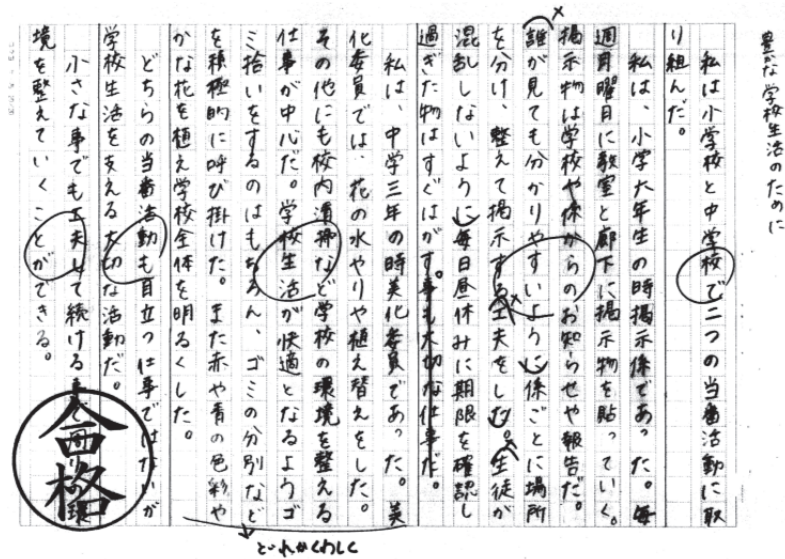 豊かな学校生活のために
私は小学校と中学校で二つの当番活動に取
り組んだ。
私は、小学六年生の時掲示係であった。毎
週月曜日に教室と廊下に掲示物を貼っていく。
掲示物は学校や係からのお知らせや報告だ。
誰が見ても分かりやすいように係ごとに場所
を分け、整えて掲示する工夫をした。生徒が
混乱しないように毎日昼休みに期限を確認し
過ぎた物はすぐはがす。事も大切な仕事だ。
私は、中学三年の時美化委員であった。美
化委員では、花の水やりや植え替えをした。
その他にも校内清掃など学校の環境を整える
仕事が中心だ。学校生活が快適となるようゴ
ミ拾いをするのはもちろん、ゴミの分別など
を積極的に呼び掛けた。また赤や青の色彩や
かな花を植え学校全体を明るくした。
どちらの当番活動も目立つ仕事ではないが
学校生活を支える大切な活動だ。
小さな事でも工夫して続ける事で周りの環
境を整えていくことができる。
どれかくわしく
合格